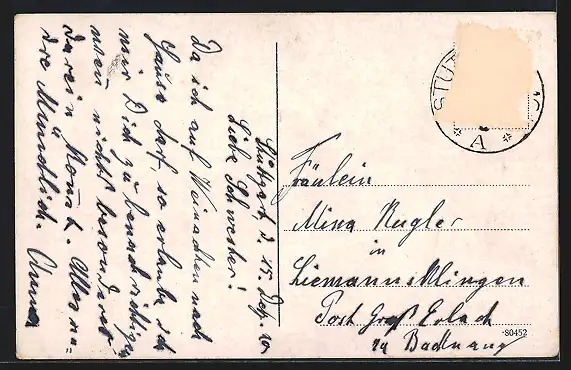 Stuttgart d. 15. Dez. 10
Liebe Schwester!
Da ich auf Weinachten nach
Hause darf, so erlaube ich
mir Dich zu benachrichtigen
nicht besonderes
Alles
die Mündlich. Anna
STU
A
Fräulein
Mina Kugler
in
Liemannsklingen
Post Groß Erlach
Backnang
80452